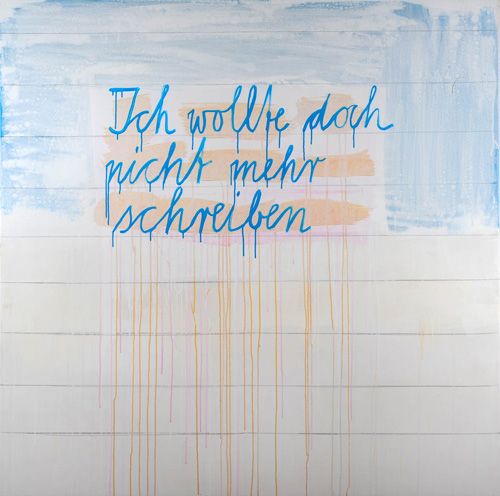 Ich wollte doch
nicht mehr
schreiben